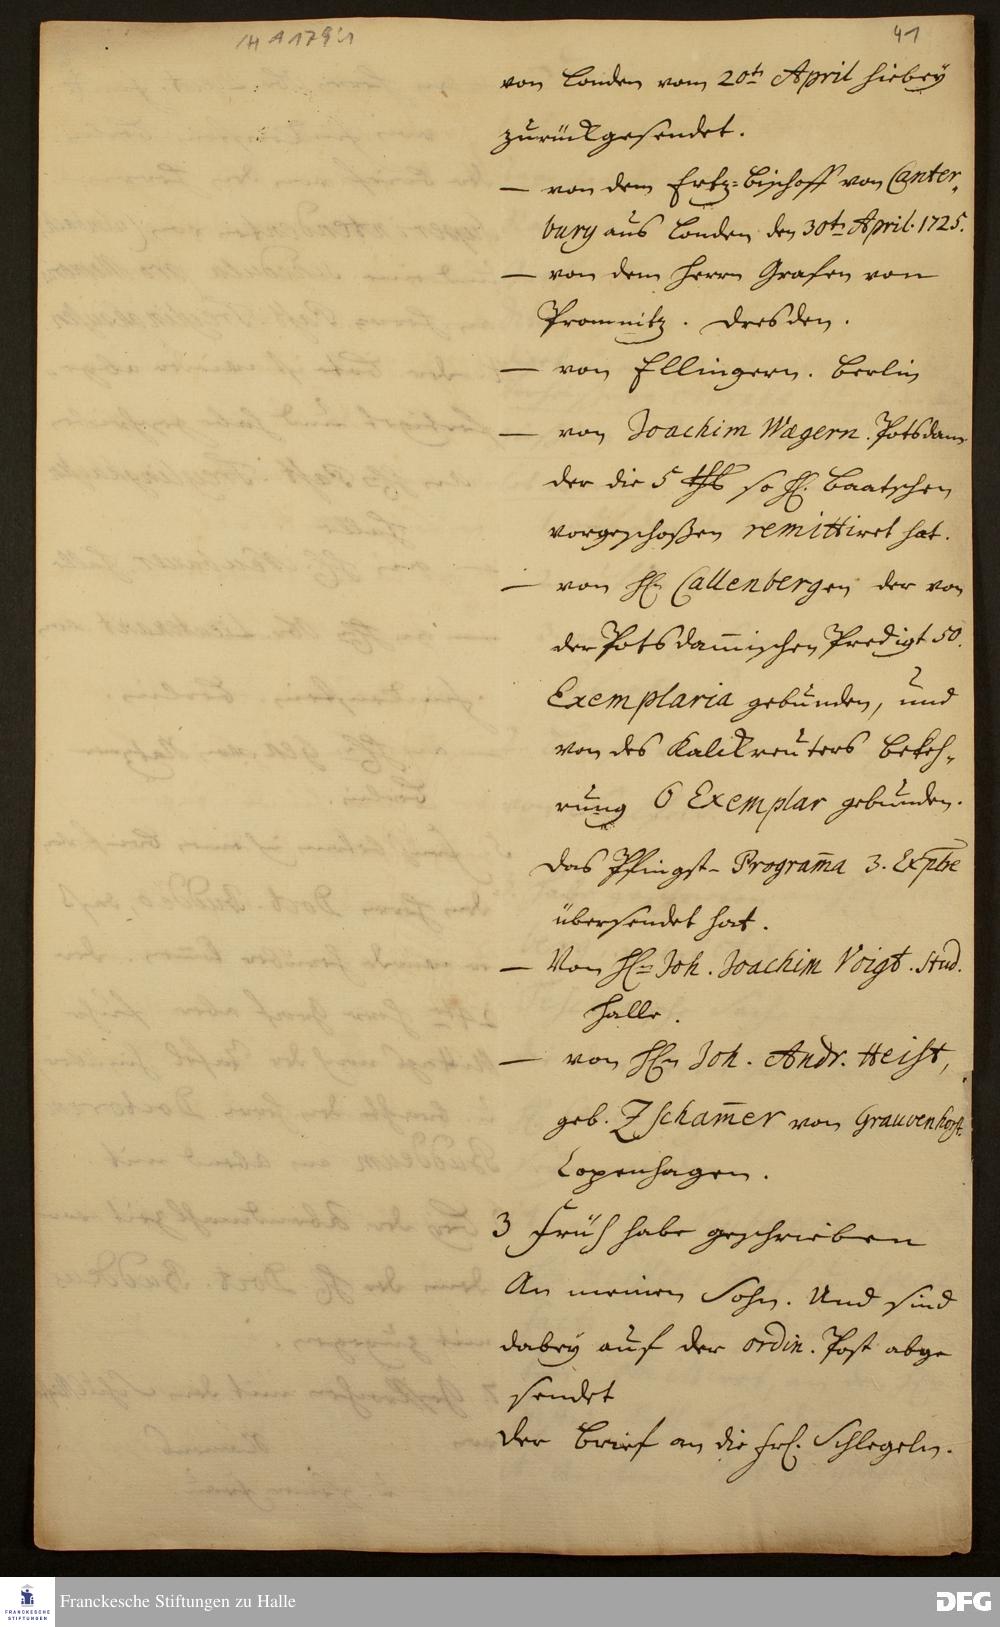 41
von Londen vom 20t. April hiebey
zurückgesendet.
— von dem Ertz-Bischoff von Canter-
bury aus Londen den 30t. April. 1725.
— von dem Herrn Grafen von
Promnitz. Dresden.
— von Ellingern. Berlin
— von Joachim Wægern. Potsdam
der die 5 thl. so H. Baatschen
vorgeschoßen remittiret hat.
— von H. Callenbergen der von
der Potsdam̄ischen Predigt 50.
Exemplaria gebunden, und
von des Kalckreuters Bekeh-
rung 6 Exemplar gebunden.
das Pfingst-Program̄a 3. Explre
übersendet hat.
— Von H. Joh. Joachim Voigt. Stud.
Halle.
— von Hn Joh. Andr. Heist,
geb. Zscham̄er von Grauvenhorst.
Copenhagen.
3 Früh habe geschrieben
An meinen Sohn. Und sind
dabey auf der ordin. Post abge
sendet
Der Brief an die Frl. Schlegeln.
FRANCKESCHE
STIFTUNGEN
Franckesche Stiftungen zu Halle
DFG